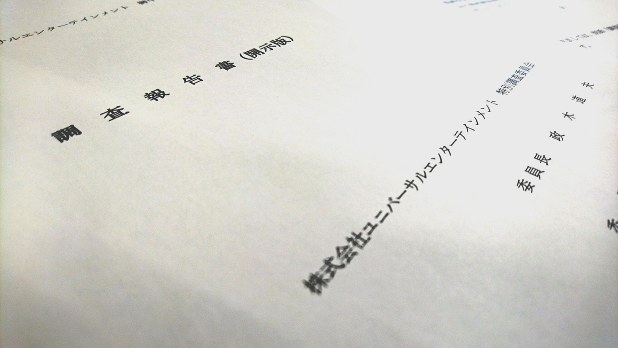 ルエンターテインメント
調査報告書(開示版)
株式会社ユニバーサルエンターテインメント 特別調査委員会
委員長 政木道夫